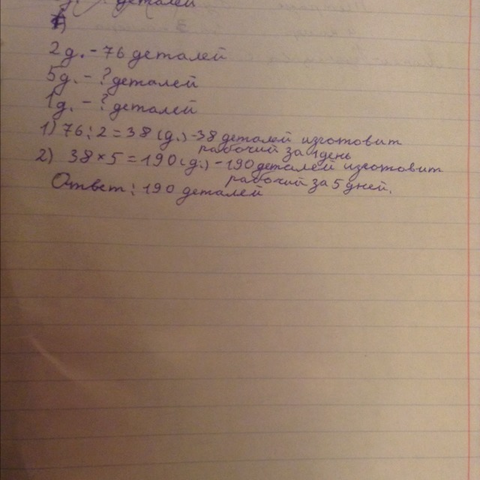 деталей
2 д. - 76 деталей
5 д. - ? деталей
1 д. - ? деталей
1) 76 : 2 = 38 (д.) - 38 деталей изготовит
рабочий за 1 день
2) 38 × 5 = 190 (д.) - 190 деталей изготовит
рабочий за 5 дней.
Ответ: 190 деталей